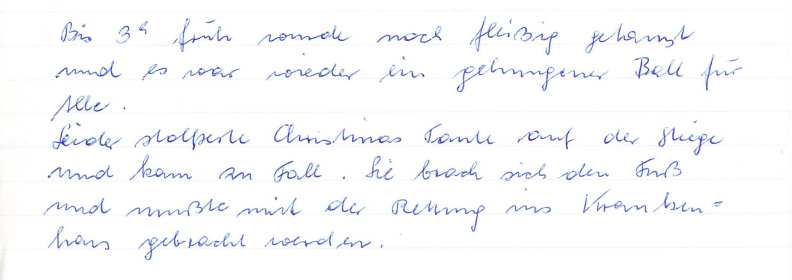 Bis 3h früh wurde noch fleißig getanzt
und es war wieder ein gelungener Ball für
Alle.
Leider stolperte Christinas Tante auf der Stiege
und kam zu Fall. Sie brach sich den Fuß
und mußte mit der Rettung ins Kranken=
haus gebracht werden.